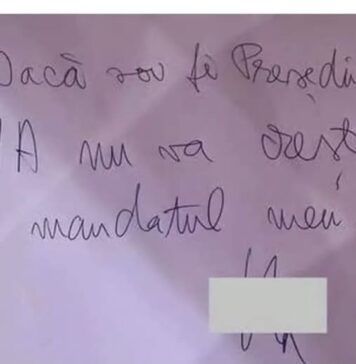 Dacă voi fi Președi
A nu va crește
mandatul meu